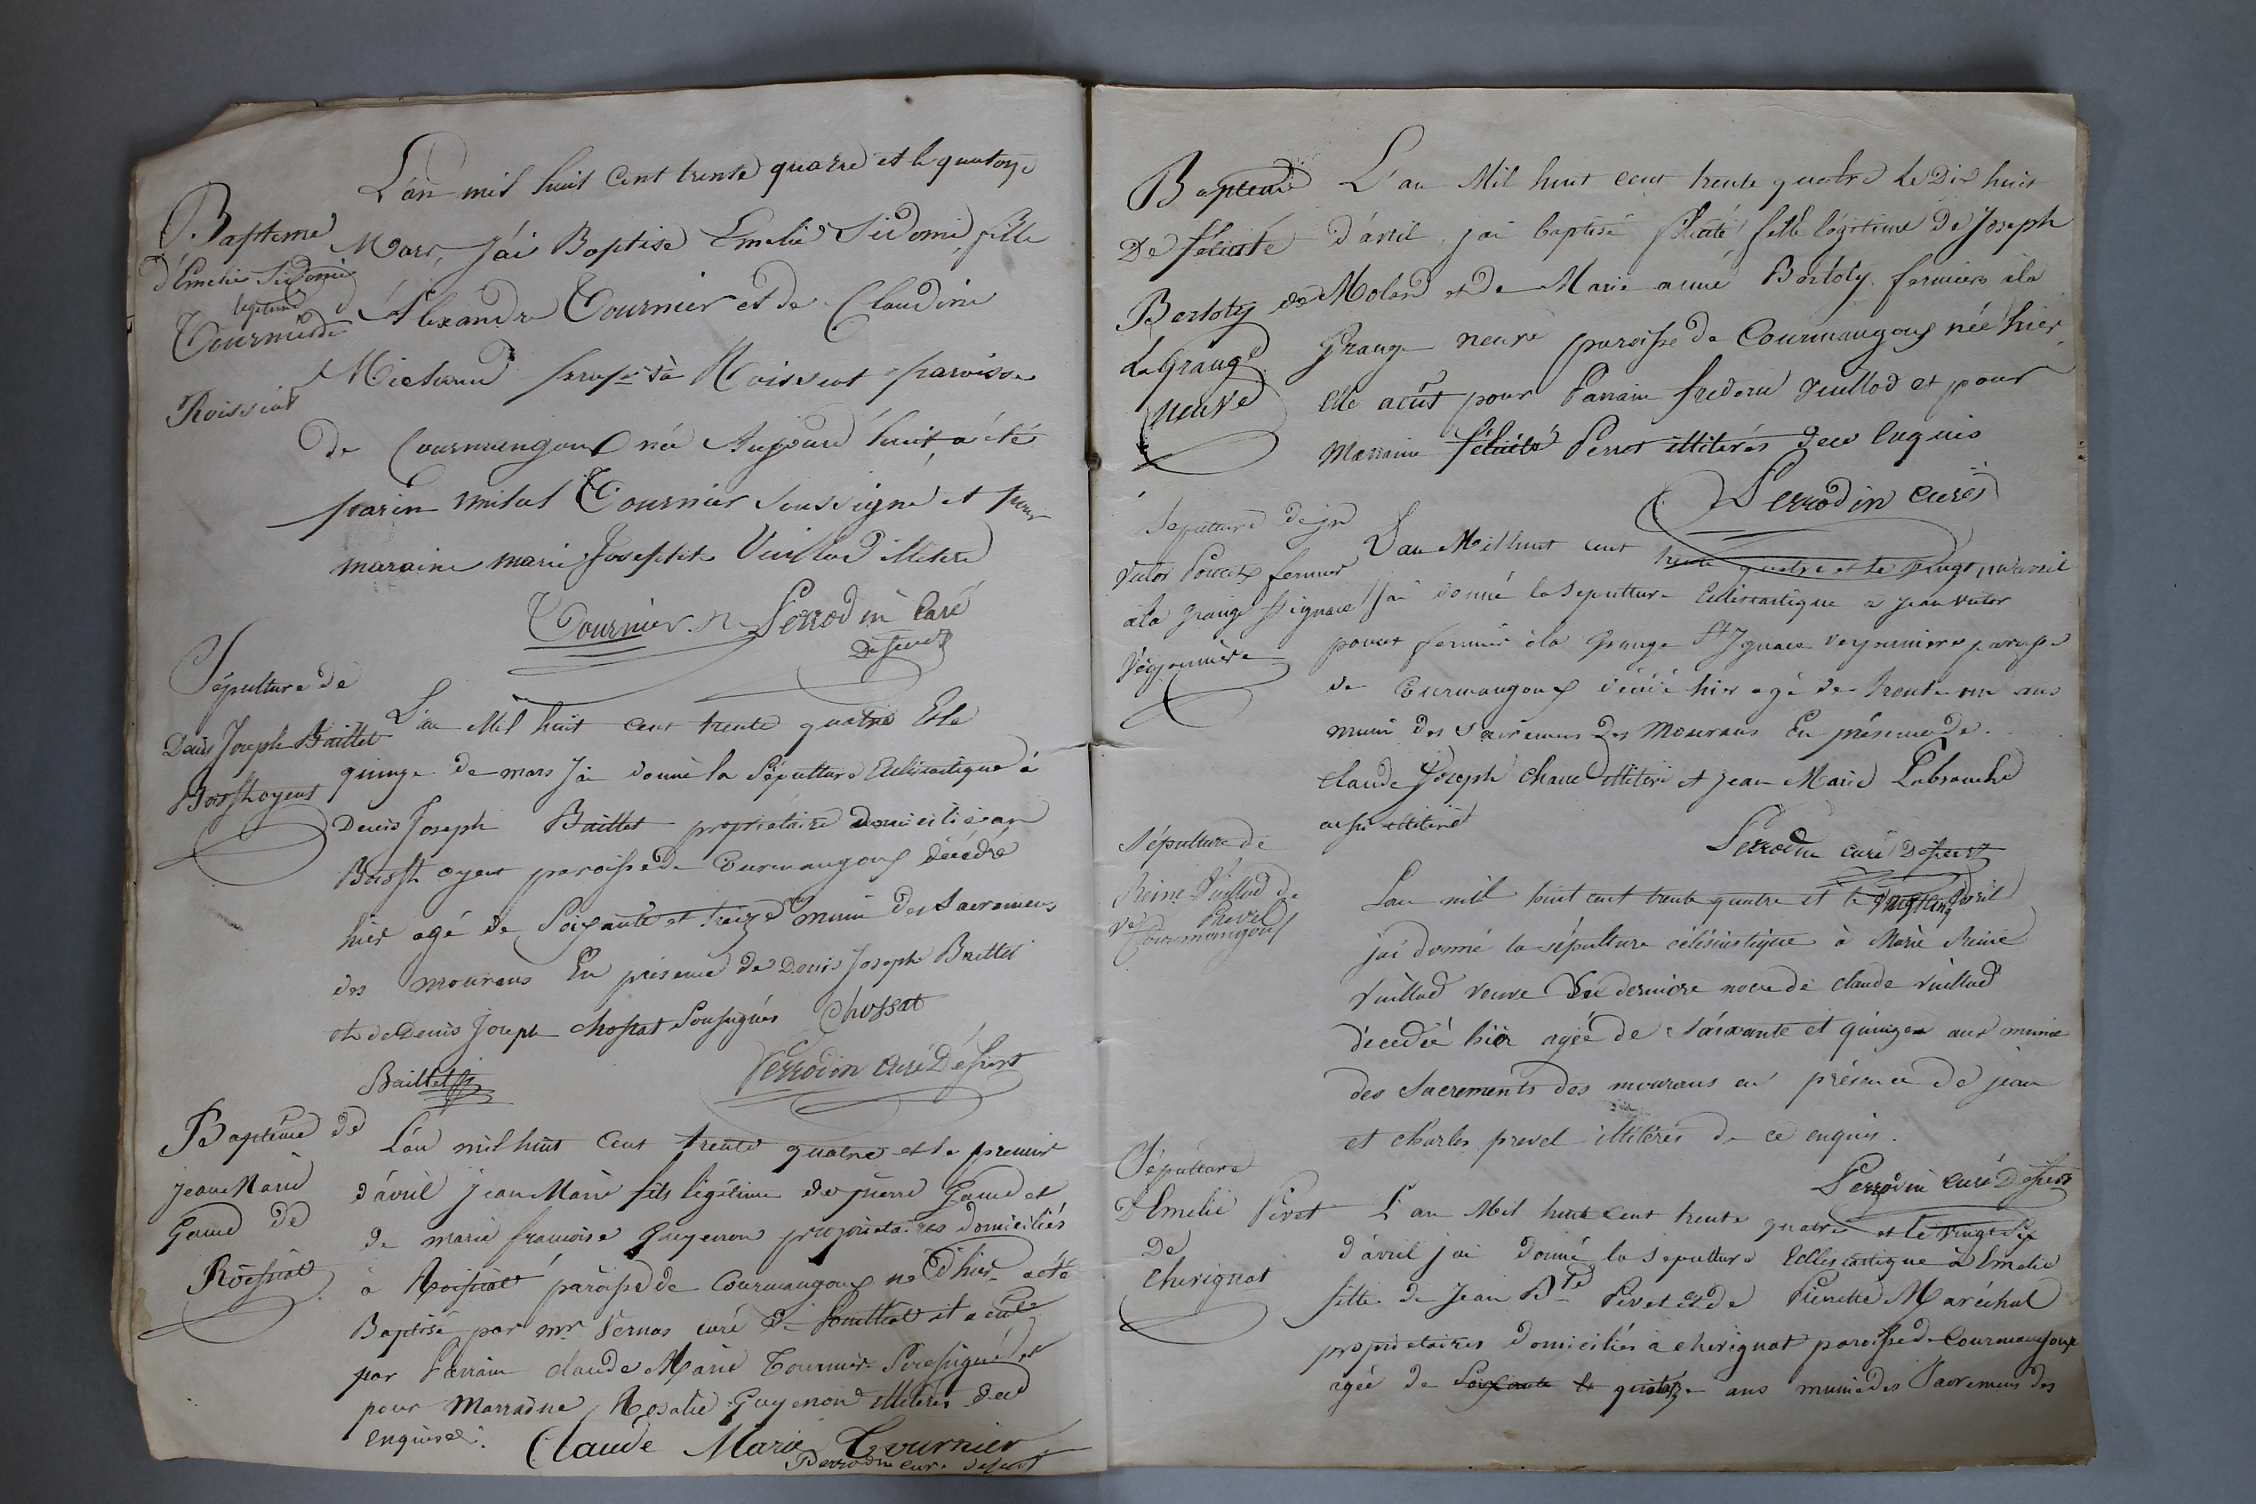 Baptême
d'Emelie Sidonie
legitime
Tournier de
Roissiat
L'an mil huit cent trente quatre et le quatorze
Mars, j'ai Baptisé Emelie Sidonie, fille
d'Alexandre Tournier et de Claudine
Michaud prop. à Roissiat paroisse
de Courmangoux née Aujourd'huit, a été
parin Tournier soussigné et pour
maraine marie Josephte Vuillod illitéré
Tournier Perrodin Curé
Desserv
Sépulture de
Denis Joseph Baillet
L'an Mil huit cent trente quatre Et le
quinze de mars j'ai donné la Sépulture Eclésiastique à
Denis Joseph Baillet propriétaire domicilié au
paroisse de Courmangoux décédé
hier agé de Soixante et treize muni des Sacremens
des mourans En présence de Denis Joseph Baillet
et de Denis Joseph Chossat Soussignés Chossat
Baillet Perrodin curé Désserv
Baptême de
jean Marie
Gaud de
Roissiat
L'an mil huit Cent trente quatre et le premier
d'avril jean Marie fils légitime de pierre Gaud et
de marie francoise Guyenon propriétaires domiciliés
à Roissiat paroisse de Courmangoux né d'hier a été
Baptisé par mr Vernas curé de il a eut
par Parrain claude Marie Tournier Soussigné et
pour Marraine Rosalie Guyenon illiteres de ce
enquise.
Claude Marie Tournier
Perrodin cure desserv
Bapteme
De felicité
Bertoly de
la Grange
neuve
L'an Mil huit cent trente quatre le Dix huit
d'avril j'ai baptisé félicité fille légitime de Joseph
Molard et de Marie anne Bertoly fermiers à la
Grange neuve paroisse de Courmangoux née hier
elle a eut pour Parrain frederic Vuillod et pour
Marraine félicité Perret illiterés de ce enquis
Perrodin curé
Sépulture de jn
Victor Poncet fermier
à la grange St ignace
L'an Mil huit cent trente quatre et le vingt un avril
j'ai donné la Sepulture Eclésiastique a jean victor
poncet fermier à la Grange St Ignace paroisse
de Courmangoux décédé hier agé de trente un ans
muni des Sacremens des Mourans En présence de
claude Joseph Chanel illitéré et jean Marie Labranche
aussi illitéré
Perrodin curé Désserv
Sépulture de
Reine Vuillod de
ve Prevel
Courmangoux
L'an mil huit cent trente quatre et le vingt cinq avril
j'ai donné la sépulture eclésiastique à Marie Reine
Vuillod veuve en derniere noce de claude Vuillod
décedée hier agée de soixante et quinze ans munie
des Sacrements des mourans en présence de jean
et charles prevel illiterés de ce enquis.
Perrodin curé Desserv
Sépulture
D'Emelie Pivet
De
Cherignat
L'an Mil huit cent trente quatre et le vingt six
d'avril j'ai donné la Sepulture Ecclesiastique à Emelie
fille de Jean Bte Pivet et de Pierrette Maréchal
proprietaires domiciliés a cherignat paroisse de Courmangoux
agée de soixante et quatorze ans munie des Sacremens des